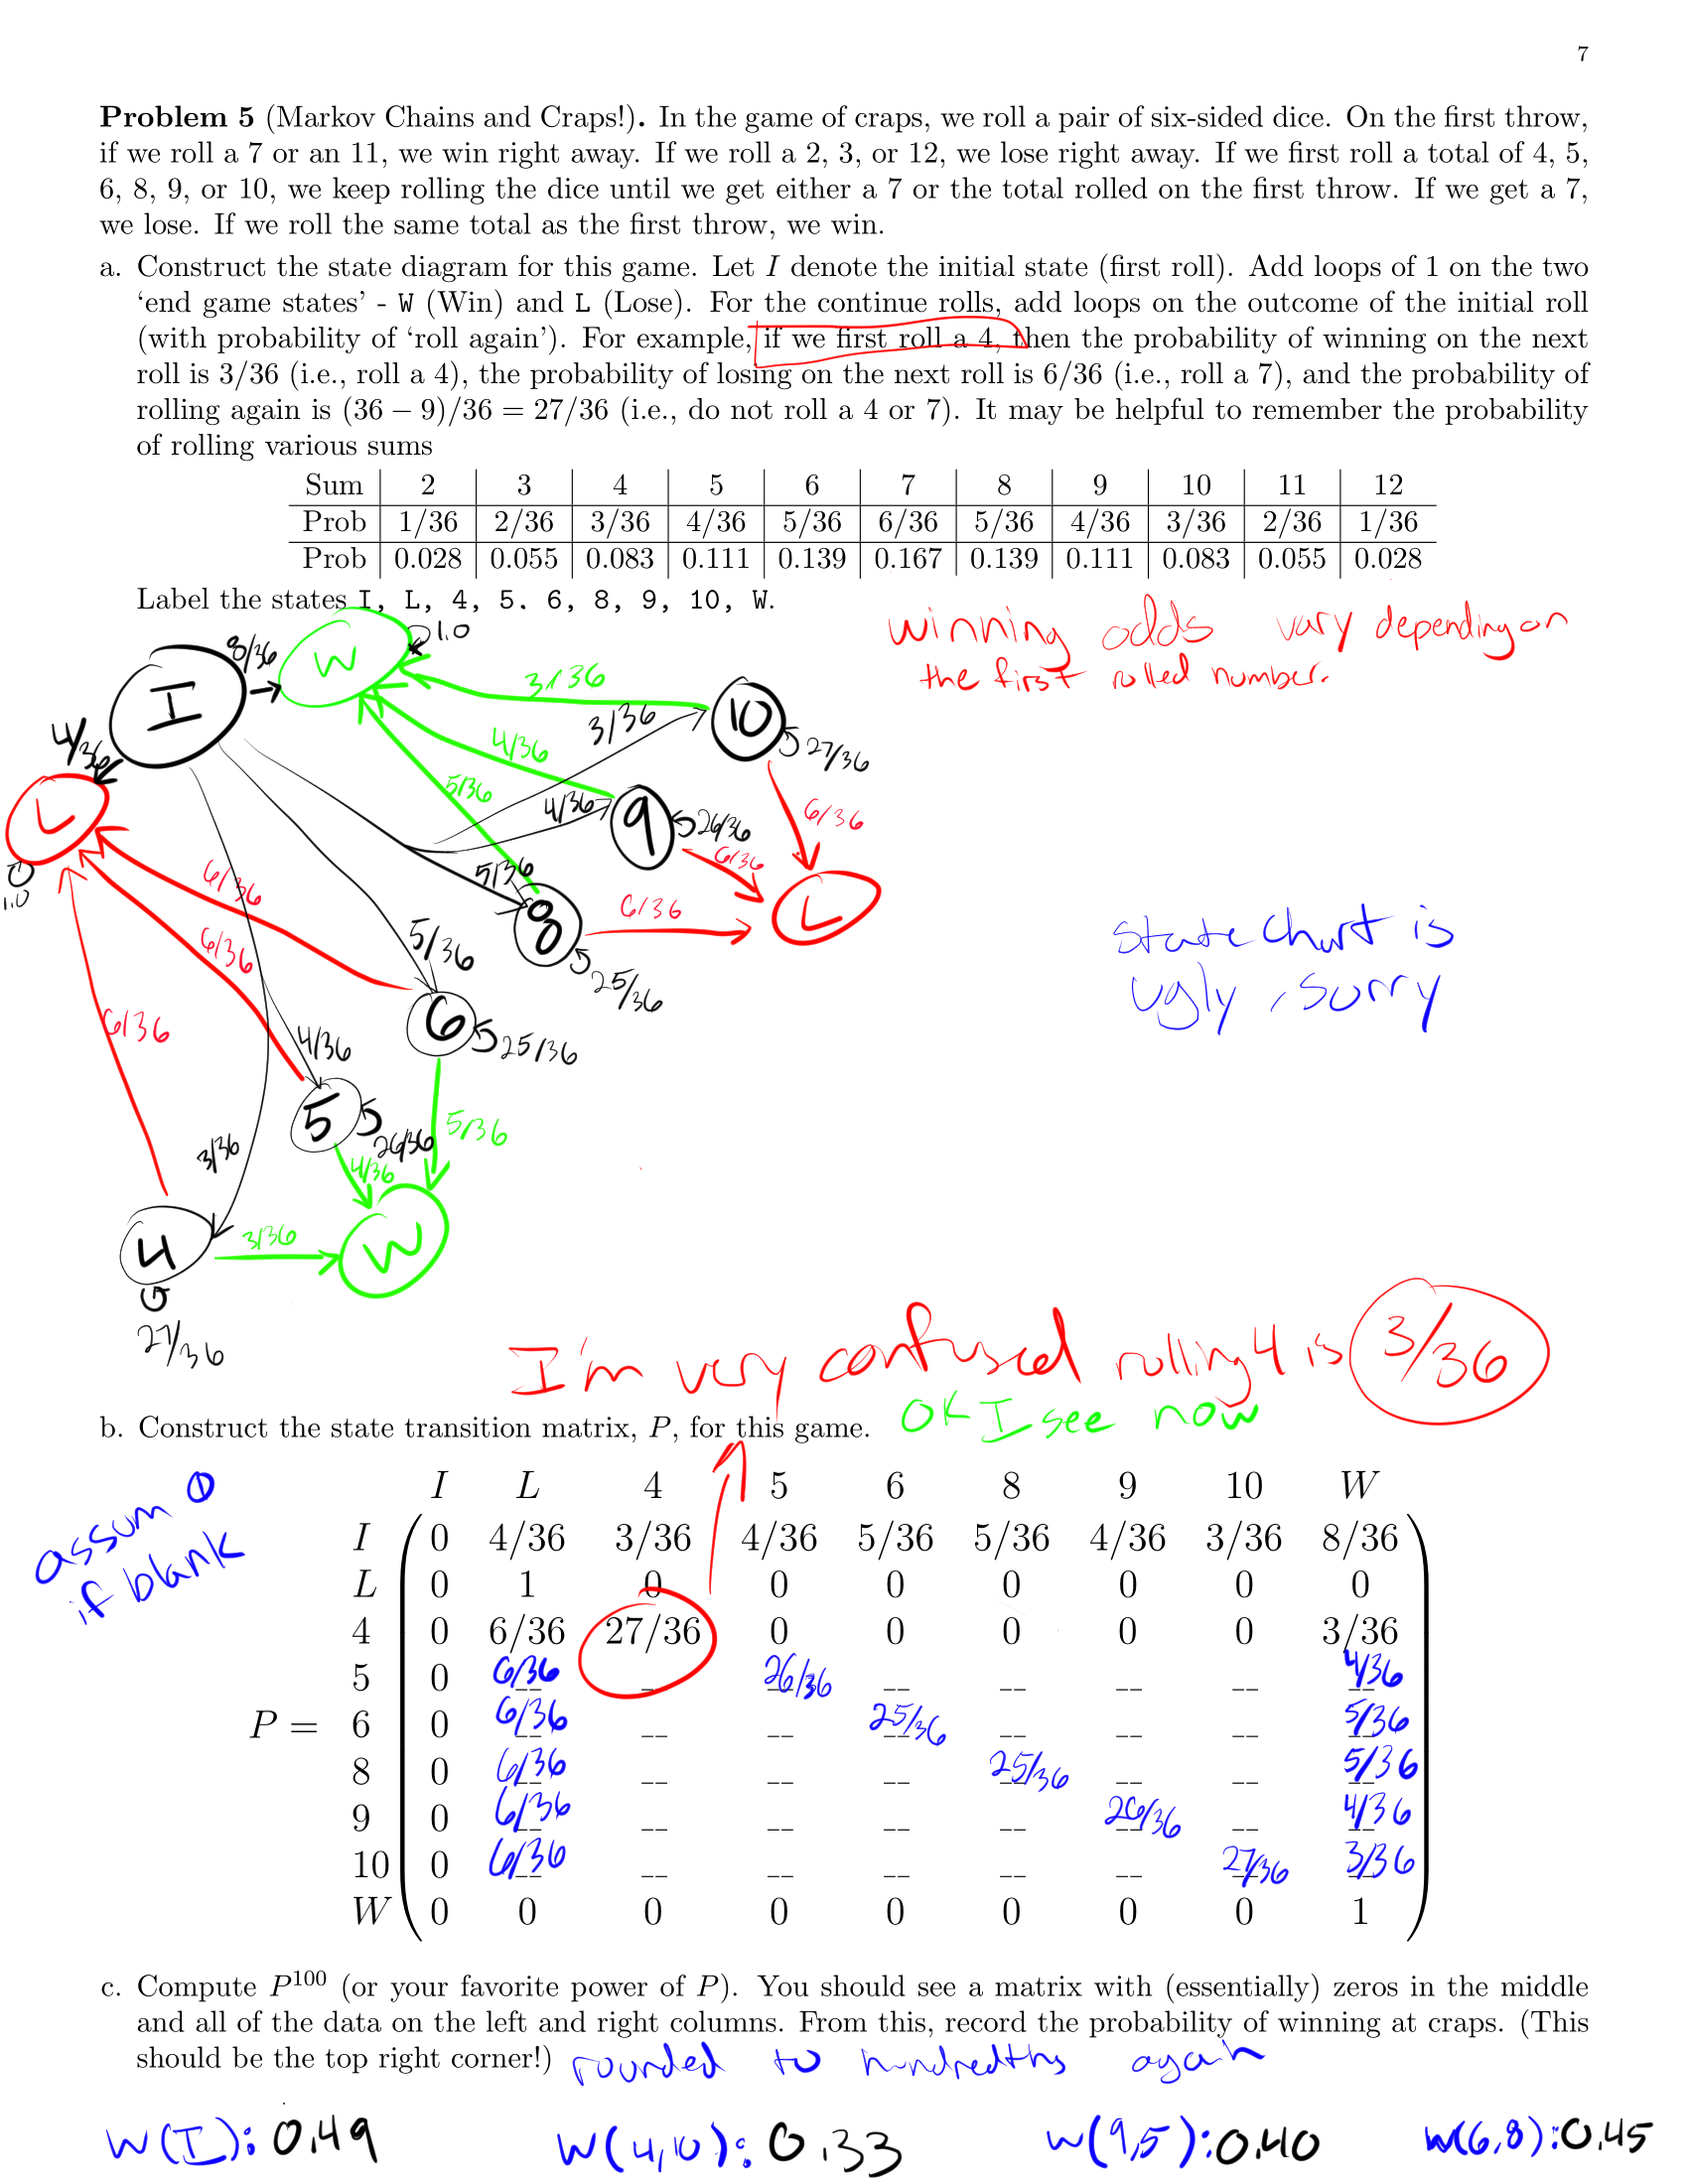 7
Problem 5 (Markov Chains and Craps!). In the game of craps, we roll a pair of six-sided dice. On the first throw,
if we roll a 7 or an 11, we win right away. If we roll a 2, 3, or 12, we lose right away. If we first roll a total of 4, 5,
6, 8, 9, or 10, we keep rolling the dice until we get either a 7 or the total rolled on the first throw. If we get a 7,
we lose. If we roll the same total as the first throw, we win.
a. Construct the state diagram for this game. Let I denote the initial state (first roll). Add loops of 1 on the two
‘end game states’ - W (Win) and L (Lose). For the continue rolls, add loops on the outcome of the initial roll
(with probability of ‘roll again’). For example, if we first roll a 4, then the probability of winning on the next
roll is 3/36 (i.e., roll a 4), the probability of losing on the next roll is 6/36 (i.e., roll a 7), and the probability of
rolling again is (36 − 9)/36 = 27/36 (i.e., do not roll a 4 or 7). It may be helpful to remember the probability
of rolling various sums
Sum 2 3 4 5 6 7 8 9 10 11 12
Prob 1/36 2/36 3/36 4/36 5/36 6/36 5/36 4/36 3/36 2/36 1/36
Prob 0.028 0.055 0.083 0.111 0.139 0.167 0.139 0.111 0.083 0.055 0.028
Label the states I, L, 4, 5. 6, 8, 9, 10, W.
winning odds vary depending on
the first rolled number.
8/36
W
1.0
I
3/36
10
3/36
27/36
4/36
4/36
5/36
L
4/36
9
26/36
6/36
6/36
1.0
5/36
8
6/36
L
25/36
6/36
6/36
5/36
state chart is
ugly, sorry
6
25/36
6/36
4/36
5
26/36
5/36
4/36
3/36
4
3/36
W
27/36
I'm very confused rolling 4 is 3/36
OK I see now
b. Construct the state transition matrix, P, for this game.
assum 0
if blank
I L 4 5 6 8 9 10 W
I 0 4/36 3/36 4/36 5/36 5/36 4/36 3/36 8/36
L 0 1 0 0 0 0 0 0 0
4 0 6/36 27/36 0 0 0 0 0 3/36
5 0 6/36 __ 26/36 __ __ __ __ 4/36
P = 6 0 6/36 __ __ 25/36 __ __ __ 5/36
8 0 6/36 __ __ __ 25/36 __ __ 5/36
9 0 6/36 __ __ __ __ 26/36 __ 4/36
10 0 6/36 __ __ __ __ __ 27/36 3/36
W 0 0 0 0 0 0 0 0 1
c. Compute P^100 (or your favorite power of P). You should see a matrix with (essentially) zeros in the middle
and all of the data on the left and right columns. From this, record the probability of winning at craps. (This
should be the top right corner!) rounded to hundredths again
W(I): 0.49 W(4,10): 0.33 W(9,5): 0.40 W(6,8): 0.45